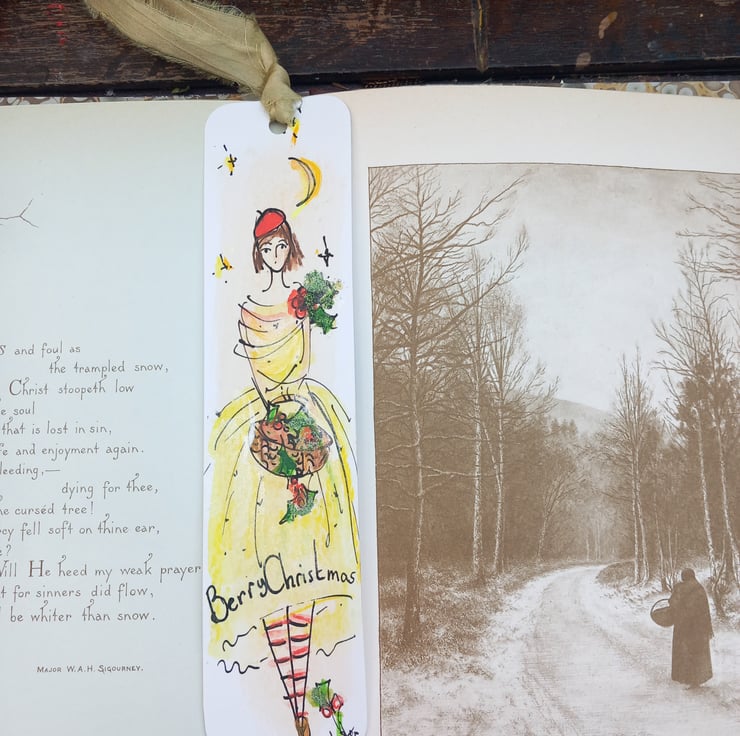 and foul as
the trampled snow,
Christ stoopeth low
soul
that is lost in sin,
and enjoyment again.
dying for thee,
curséd tree!
fell soft on thine ear,
?
Will He heed my weak prayer
for sinners did flow,
be whiter than snow.
Major W.A.H. Sigourney.
Berry Christmas